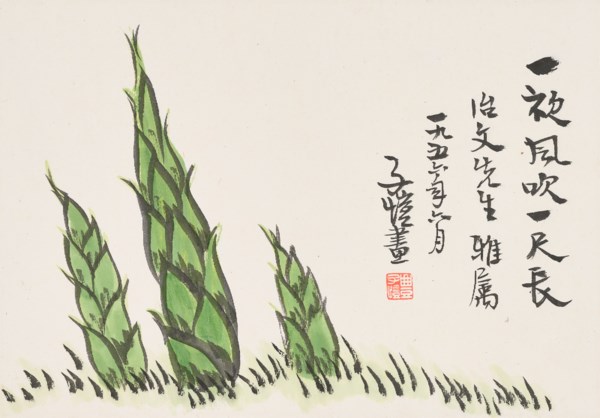 一夜风吹一尺長
治文先生 雅属
一九五六年六月
子愷畫